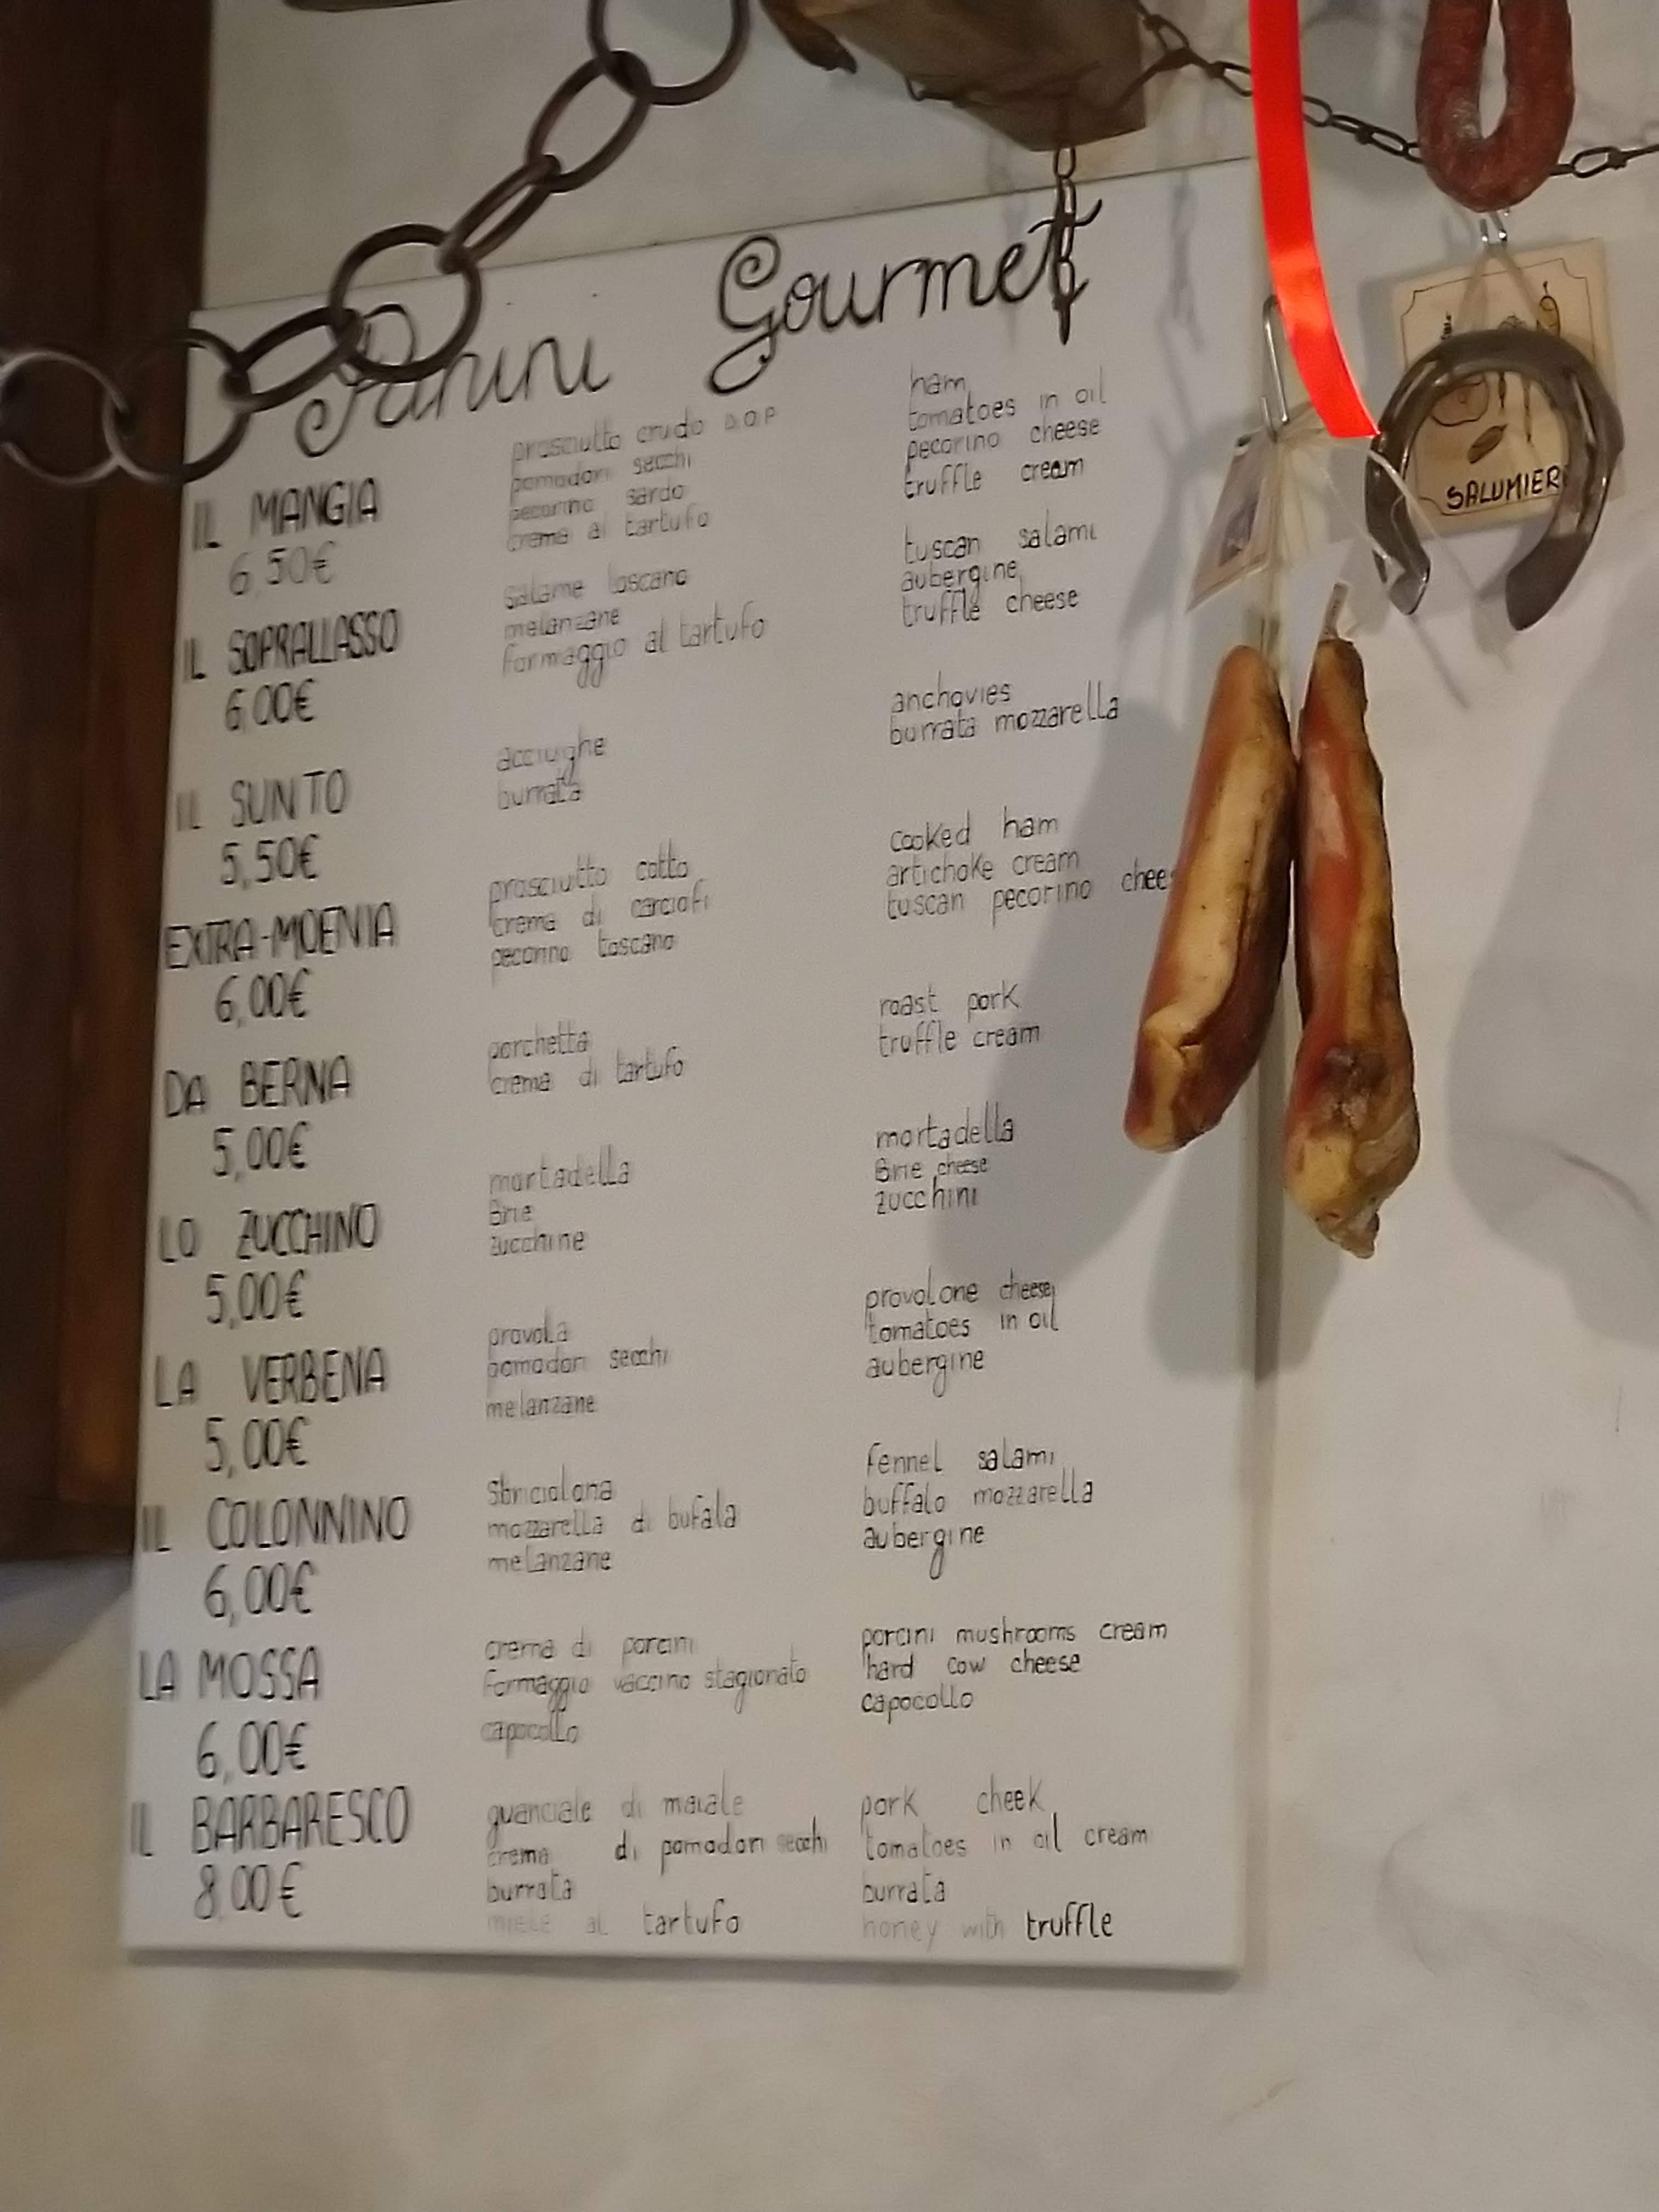 Panini Gourmet
IL MANGIA
6,50€
prosciutto crudo D.O.P
pomodori secchi
pecorino sardo
crema al tartufo
ham
tomatoes in oil
pecorino cheese
truffle cream
IL SOPRALLASSO
6,00€
salame toscano
melanzane
formaggio al tartufo
tuscan salami
aubergine
truffle cheese
IL SUNTO
5,50€
acciughe
burrata
anchovies
burrata mozzarella
EXTRA-MOENIA
6,00€
prosciutto cotto
crema di carciofi
pecorino toscano
cooked ham
artichoke cream
tuscan pecorino chees
DA BERNA
5,00€
porchetta
crema di tartufo
roast pork
truffle cream
LO ZUCCHINO
5,00€
mortadella
Brie
zucchine
mortadella
Brie cheese
zucchini
LA VERBENA
5,00€
provola
pomodori secchi
melanzane
provolone cheese
tomatoes in oil
aubergine
IL COLONNINO
6,00€
sbriciolona
mozzarella di bufala
melanzane
fennel salami
buffalo mozzarella
aubergine
LA MOSSA
6,00€
crema di porcini
formaggio vaccino stagionato
capocollo
porcini mushrooms cream
hard cow cheese
capocollo
IL BARBARESCO
8,00€
guanciale di maiale
crema di pomodori secchi
burrata
miele al tartufo
pork cheek
tomatoes in oil cream
burrata
honey with truffle
SALUMIER